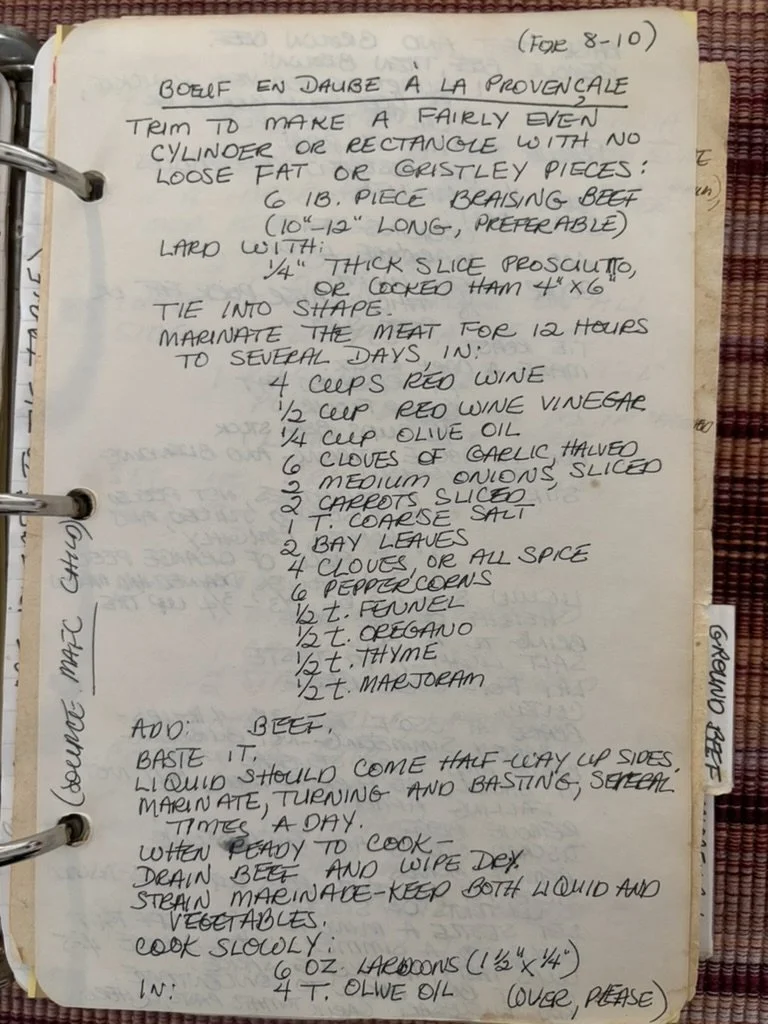 (FOR 8-10)
BOEUF EN DAUBE À LA PROVENÇALE
TRIM TO MAKE A FAIRLY EVEN
CYLINDER OR RECTANGLE WITH NO
LOOSE FAT OR GRISTLEY PIECES:
6 lB. PIECE BRAISING BEEF
(10"-12" LONG, PREFERABLE)
LARD WITH:
1/4" THICK SLICE PROSCIUTTO,
OR COOKED HAM 4" X 6"
TIE INTO SHAPE.
MARINATE THE MEAT FOR 12 HOURS
TO SEVERAL DAYS, IN:
4 CUPS RED WINE
1/2 CUP RED WINE VINEGAR
1/4 CUP OLIVE OIL
6 CLOVES OF GARLIC, HALVED
2 MEDIUM ONIONS, SLICED
2 CARROTS SLICED
1 T. COARSE SALT
2 BAY LEAVES
4 CLOVES, OR ALL SPICE
6 PEPPERCORNS
1/2 t. FENNEL
1/2 t. OREGANO
1/2 t. THYME
1/2 t. MARJORAM
ADD: BEEF.
BASTE IT.
LIQUID SHOULD COME HALF-WAY UP SIDES.
MARINATE, TURNING AND BASTING, SEVERAL
TIMES A DAY.
WHEN READY TO COOK-
DRAIN BEEF AND WIPE DRY.
STRAIN MARINADE-KEEP BOTH LIQUID AND
VEGETABLES.
COOK SLOWLY:
6 OZ. LARDOONS (1 1/2" X 1/4")
IN: 4 T. OLIVE OIL (OVER, PLEASE)
(SOURCE MAFC CHILD)
GROUND BEEF